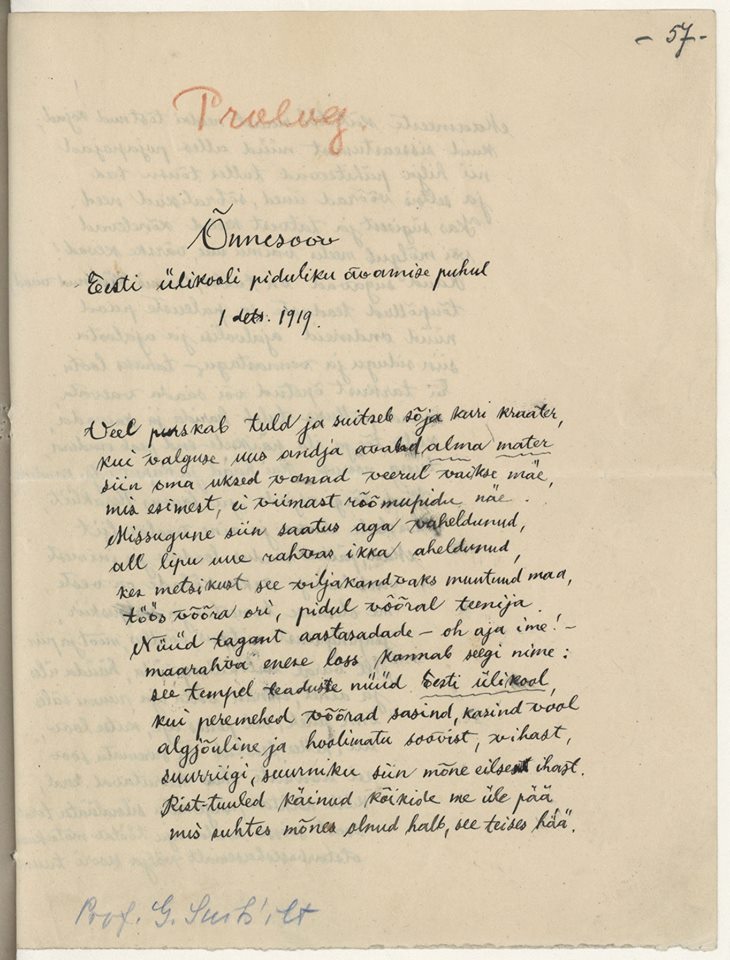 - 57 -
Prolog.
Õnnesoov
Eesti ülikooli piduliku avamise puhul
1 dets. 1919.
Veel purskab tuld ja suitseb sõja kuri kraater,
kui valguse uus andja avab alma mater
siin oma uksed vanad veerul vaikse mäe,
mis esimest, ei viimast rõõmupidu näe.
Missugune siin saatus aga vaheldunud,
all lipu uue rahvas ikka aheldunud,
kes metsikust see viljakandvaks muutnud maa,
töös võõra ori, pidul võõral teenija.
Nüüd tagant aastasadade – oh aja ime! –
maarahva enese loss kannab seegi nime:
see tempel teaduste nüüd Eesti ülikool,
kui peremehed võõrad sasind, kasind vool
algjõuline ja hoolimatu soovist, vihast,
suurriigi, suurniku siin mõne eilsest ihast.
Rist-tuuled käinud kõikide me üle pää
mis suhtes mõnes olnud halb, see teises hää.
Prof. G. Suits'ilt